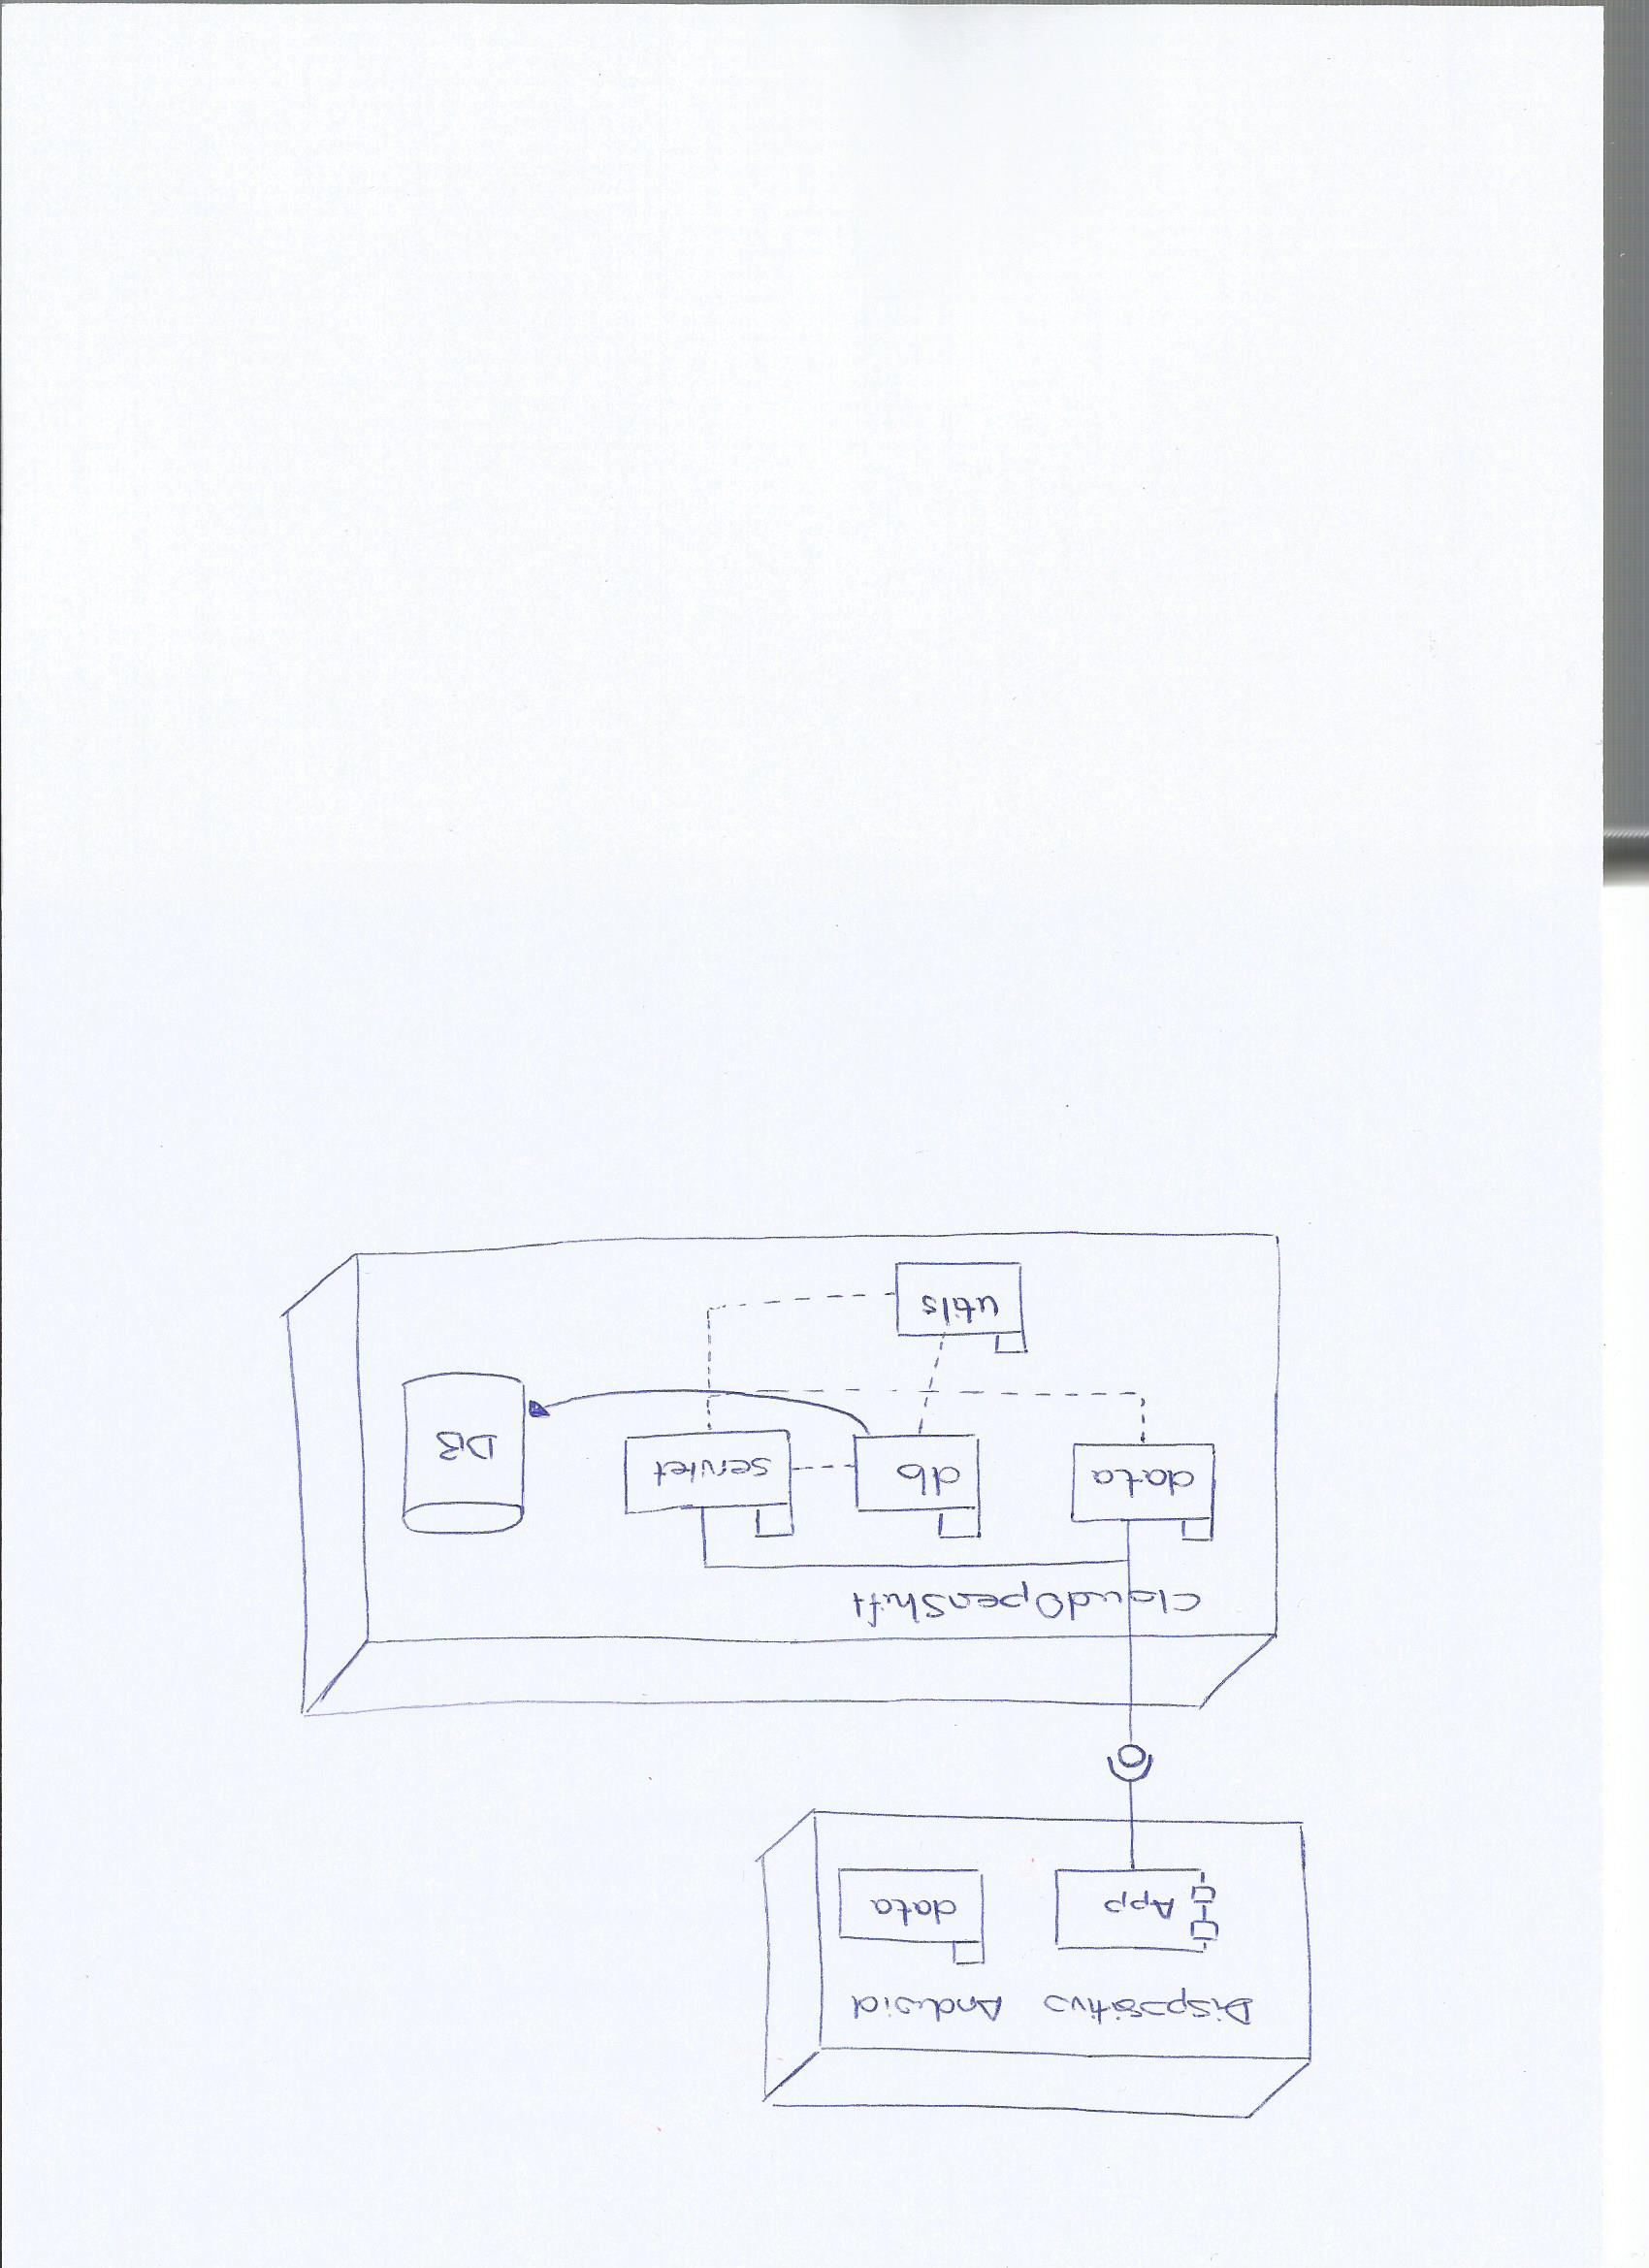 Dispositivo Android
App
data
CloudOpenShift
data
db
servlet
DB
utils